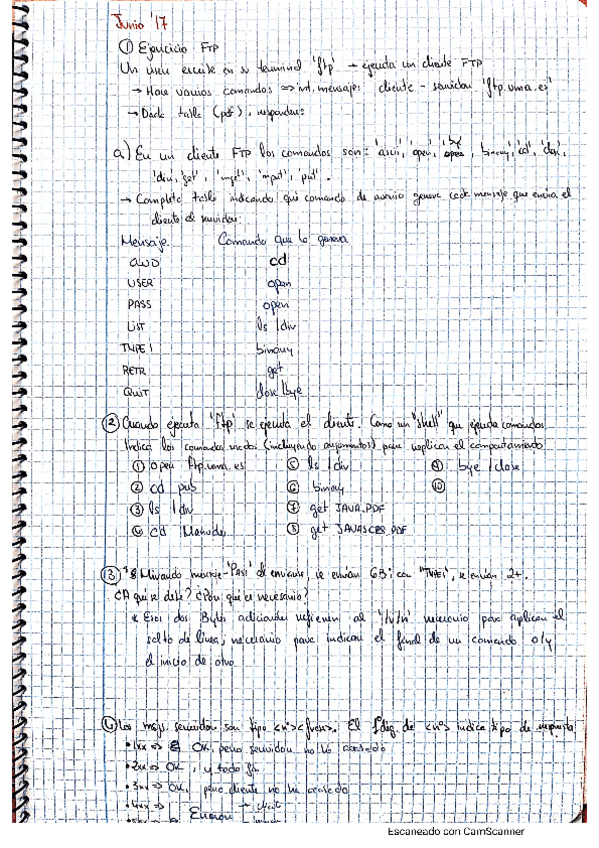 Junio '17
① Ejercicio FTP
Un user escribe en su terminal 'ftp' → ejecuta un cliente FTP
→ Hace varios comandos ⇒ int. mensajes cliente - servidor 'ftp.uma.es'
→ Dada tabla (pdf), responder:
a) En un cliente FTP los comandos son: 'ascii', 'open', 'bye', 'binary', 'cd', 'close',
'dir', 'get', 'mget', 'mput', 'put'.
→ Completa tabla indicando qué comando de usuario genera cada mensaje que envía el
cliente al servidor:
Mensaje Comando que lo genera
CWD cd
USER open
PASS open
LIST ls / dir
TYPE I binary
RETR get
QUIT close / bye
② Cuando ejecuta 'ftp' se ejecuta el cliente. Como un "shell" que ejecuta comandos.
Indica los comandos usados (incluyendo argumentos) para replicar el comportamiento
① open ftp.uma.es ⑤ ls / dir ⑨ bye / close
② cd pub ⑥ binary ⑩
③ ls / dir ⑦ get JAVA.PDF
④ cd Manuales ⑧ get
③ Mirando mensaje 'PASS' al enviarse, se envían 6B; con "TYPE I", se envían 2+.
¿A qué se debe? ¿Por qué es necesario?
* Esos dos Bytes adicionales refieren al '\r\n' necesario para aplicar el
salto de línea, necesario para indicar el final de un comando o/y
el inicio de otro
④ Los msjs. servidor son tipo <nº><frase>. El 1º díg. de <nº> indica tipo de respuesta
• 1xx ⇒ OK, pero servidor no ha acabado
• 2xx ⇒ OK, y todo fin
• 3xx ⇒ OK, pero cliente no ha acabado
• 4xx ⇒
Error
Escaneado con CamScanner